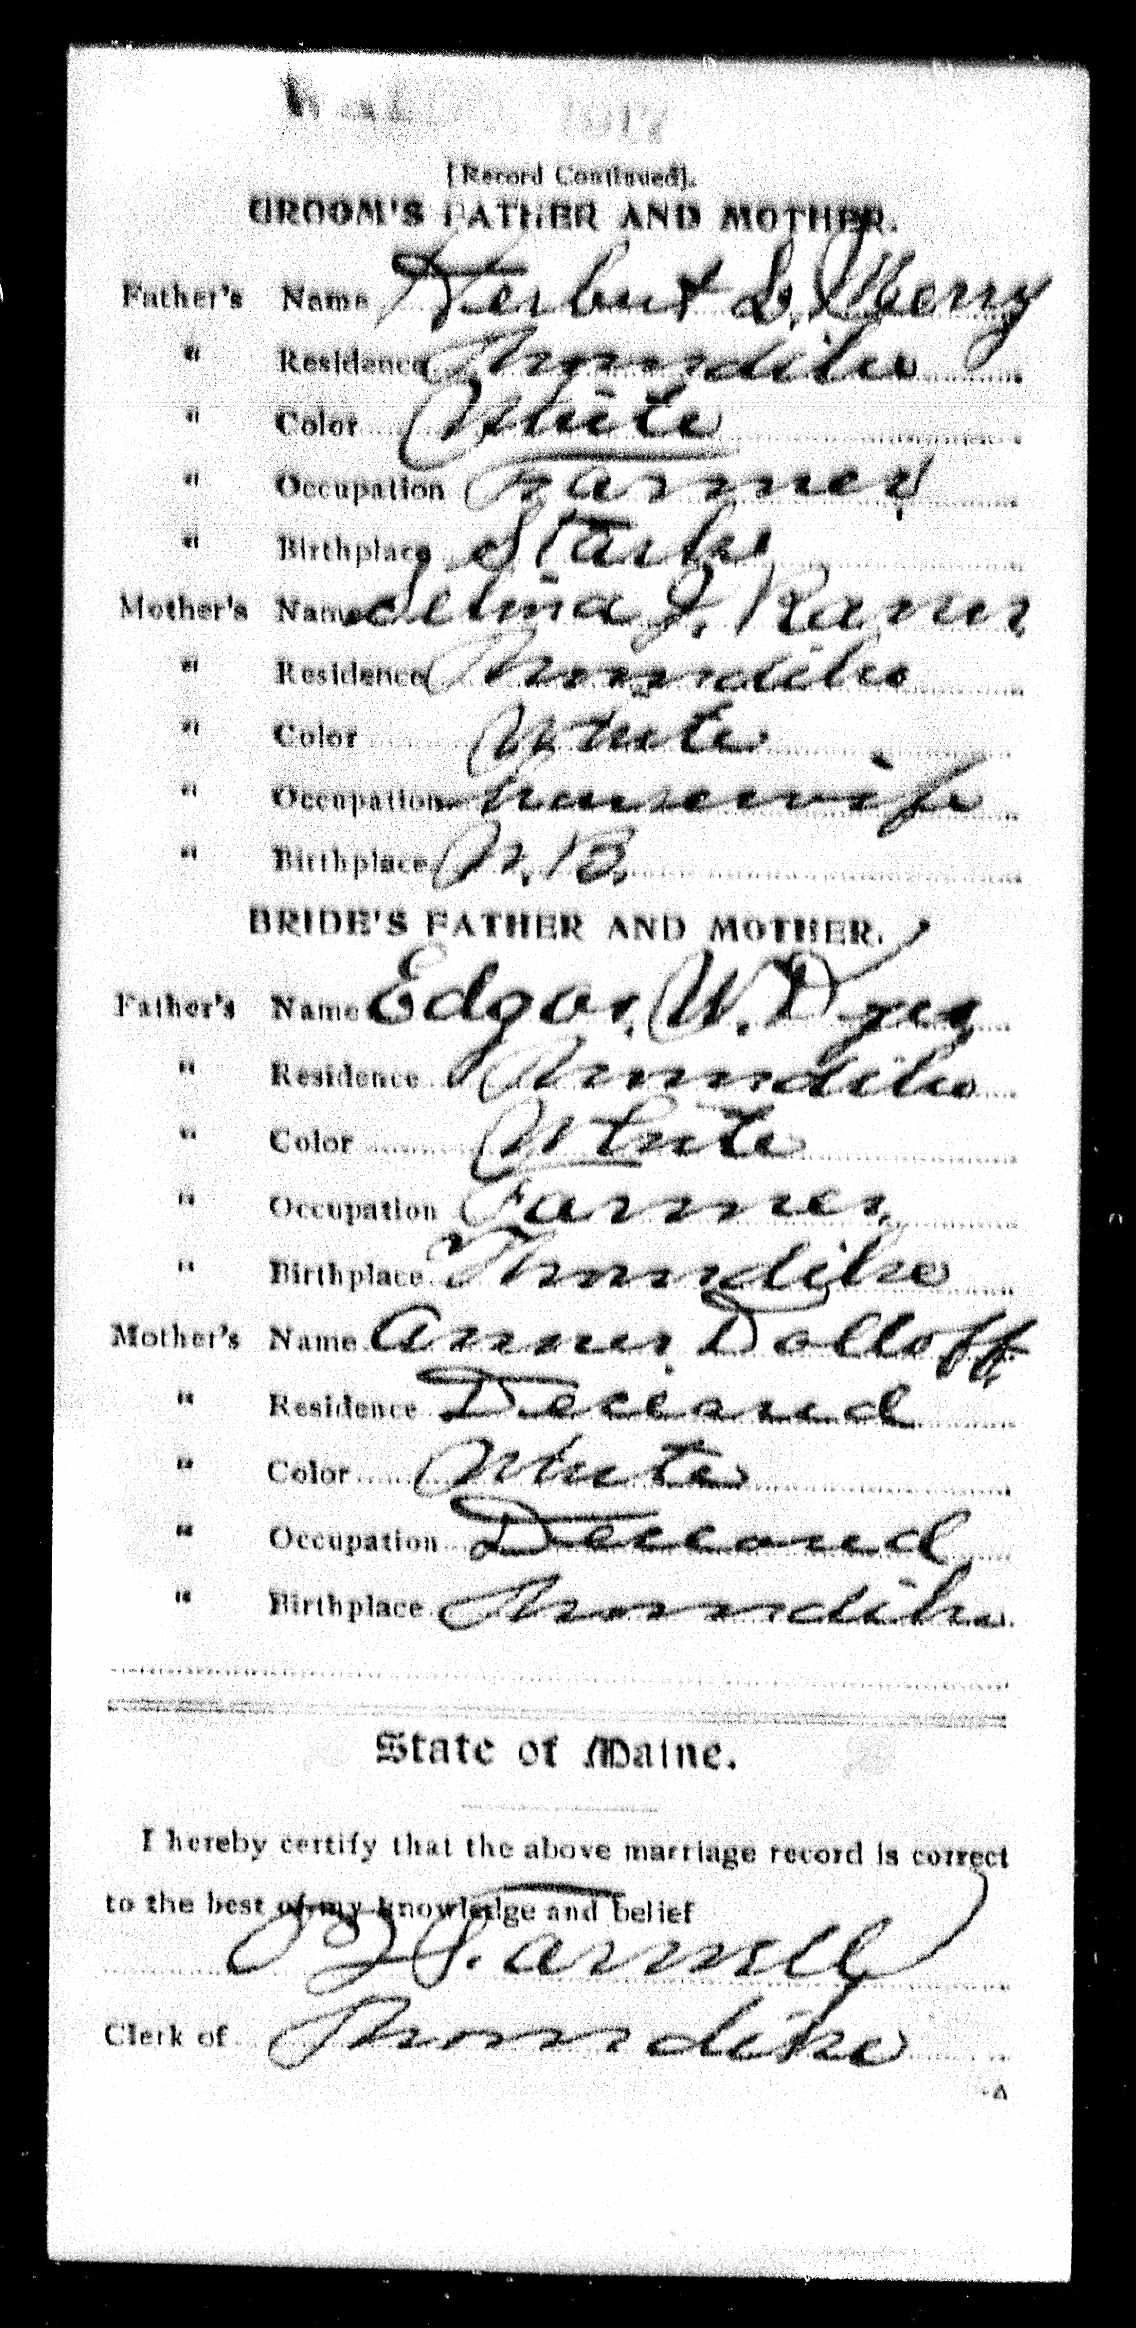 1917
[Record Continued].
GROOM'S FATHER AND MOTHER.
Father's Name Herbert L. Merry
" Residence Thorndike
" Color White
" Occupation Farmer
" Birthplace Starks
Mother's Name Selina J.
" Residence Thorndike
" Color White
" Occupation housewife
" Birthplace N. B.
BRIDE'S FATHER AND MOTHER.
Father's Name Edgar W. Dyer
" Residence Thorndike
" Color White
" Occupation Farmer
" Birthplace Thorndike
Mother's Name Dolloff
" Residence Deceased
" Color White
" Occupation Deceased
" Birthplace Thorndike
State of Maine.
I hereby certify that the above marriage record is correct
to the best of my knowledge and belief
Clerk of Thorndike